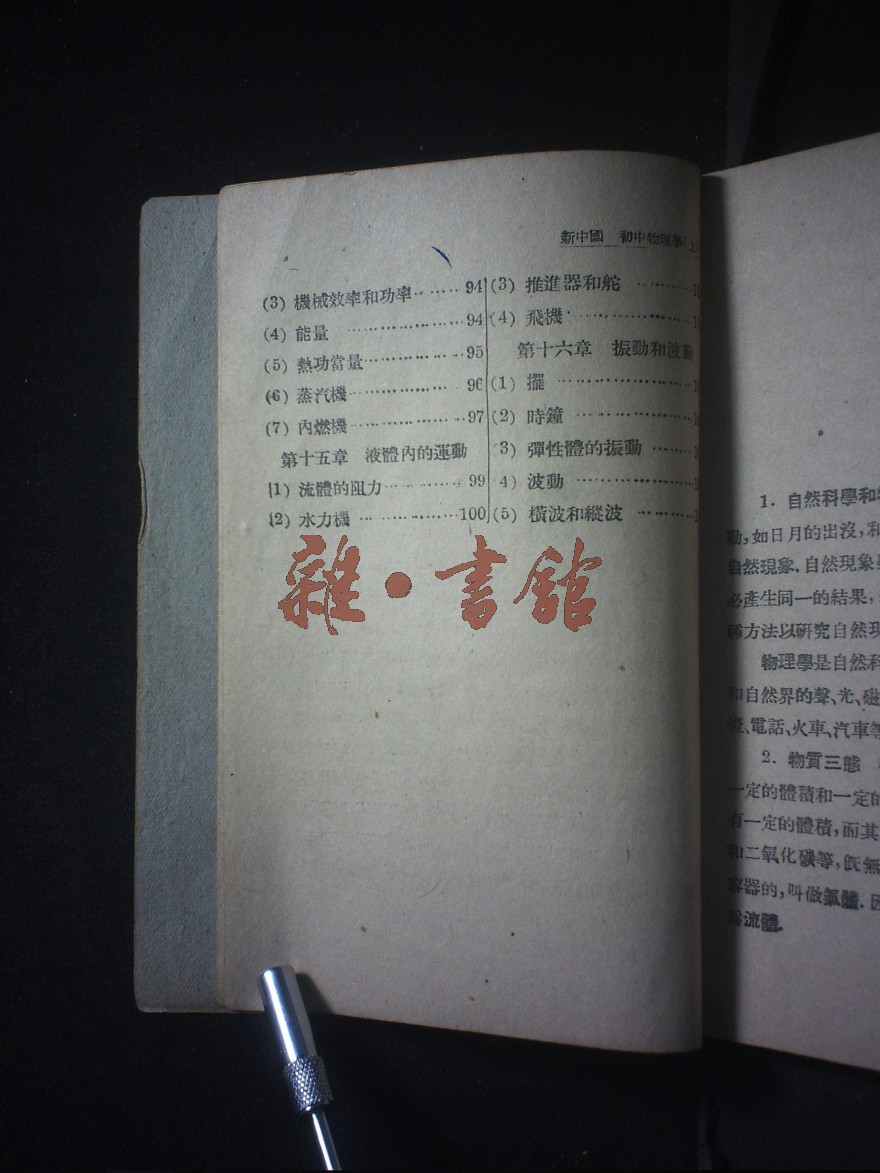 新中國 初中物理學(上
(3) 機械效率和功率……94
(4) 能量……94
(5) 熱功當量……95
(6) 蒸汽機……96
(7) 內燃機……97
第十五章 液體內的運動
(1) 流體的阻力……99
(2) 水力機……100
(3) 推進器和舵……
(4) 飛機……
第十六章 振動和波動
(1) 擺……
(2) 時鐘……
(3) 彈性體的振動……
4) 波動……
(5) 橫波和縱波……
雜・書館
1. 自然科學和
動,如日月的出沒,和
自然現象.自然現象
必產生同一的結果,
方法以研究自然現
物理學是自然科
和自然界的聲、光、磁
燈、電話、火車、汽車等
2. 物質三態
一定的體積和一定的
有一定的體積,而其
和二氧化碳等,旣無
容器的,叫做氣體.因
流體.